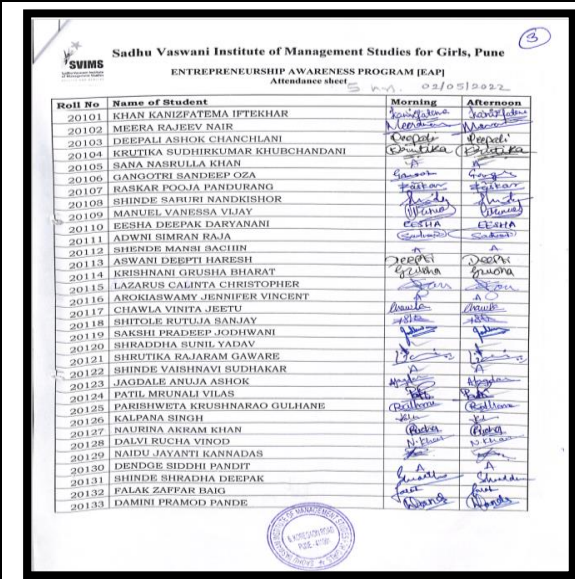 3
SVIMS
Sadhu Vaswani Institute of Management Studies for Girls, Pune
ENTREPRENEURSHIP AWARENESS PROGRAM [EAP]
Attendance sheet
02/05/2022
Roll No Name of Student Morning Afternoon
20101 KHAN KANIZFATEMA IFTEKHAR Kanizfatema Kanizfatema
20102 MEERA RAJEEV NAIR
20103 DEEPALI ASHOK CHANCHLANI Deepali Deepali
20104 KRUTIKA SUDHIRKUMAR KHUBCHANDANI Krutika Krutika
20105 SANA NASRULLA KHAN A A
20106 GANGOTRI SANDEEP OZA
20107 RASKAR POOJA PANDURANG Raskar Raskar
20108 SHINDE SABURI NANDKISHOR
20109 MANUEL VANESSA VIJAY
20110 EESHA DEEPAK DARYANANI EESHA EESHA
20111 ADWNI SIMRAN RAJA
20112 SHENDE MANSI SACHIN A A
20113 ASWANI DEEPTI HARESH Deepti Deepti
20114 KRISHNANI GRUSHA BHARAT Grusha Grusha
20115 LAZARUS CALINTA CHRISTOPHER
20116 AROKIASWAMY JENNIFER VINCENT A A
20117 CHAWLA VINITA JEETU Chawla Chawla
20118 SHITOLE RUTUJA SANJAY
20119 SAKSHI PRADEEP JODHWANI
20120 SHRADDHA SUNIL YADAV A A
20121 SHRUTIKA RAJARAM GAWARE
20122 SHINDE VAISHNAVI SUDHAKAR A A
20123 JAGDALE ANUJA ASHOK
20124 PATIL MRUNALI VILAS
20125 PARISHWETA KRUSHNARAO GULHANE
20126 KALPANA SINGH
20127 NAURINA AKRAM KHAN Rucha Rucha
20128 DALVI RUCHA VINOD N.Khan N.Khan
20129 NAIDU JAYANTI KANNADAS
20130 DENDGE SIDDHI PANDIT A A
20131 SHINDE SHRADHA DEEPAK
20132 FALAK ZAFFAR BAIG
20133 DAMINI PRAMOD PANDE